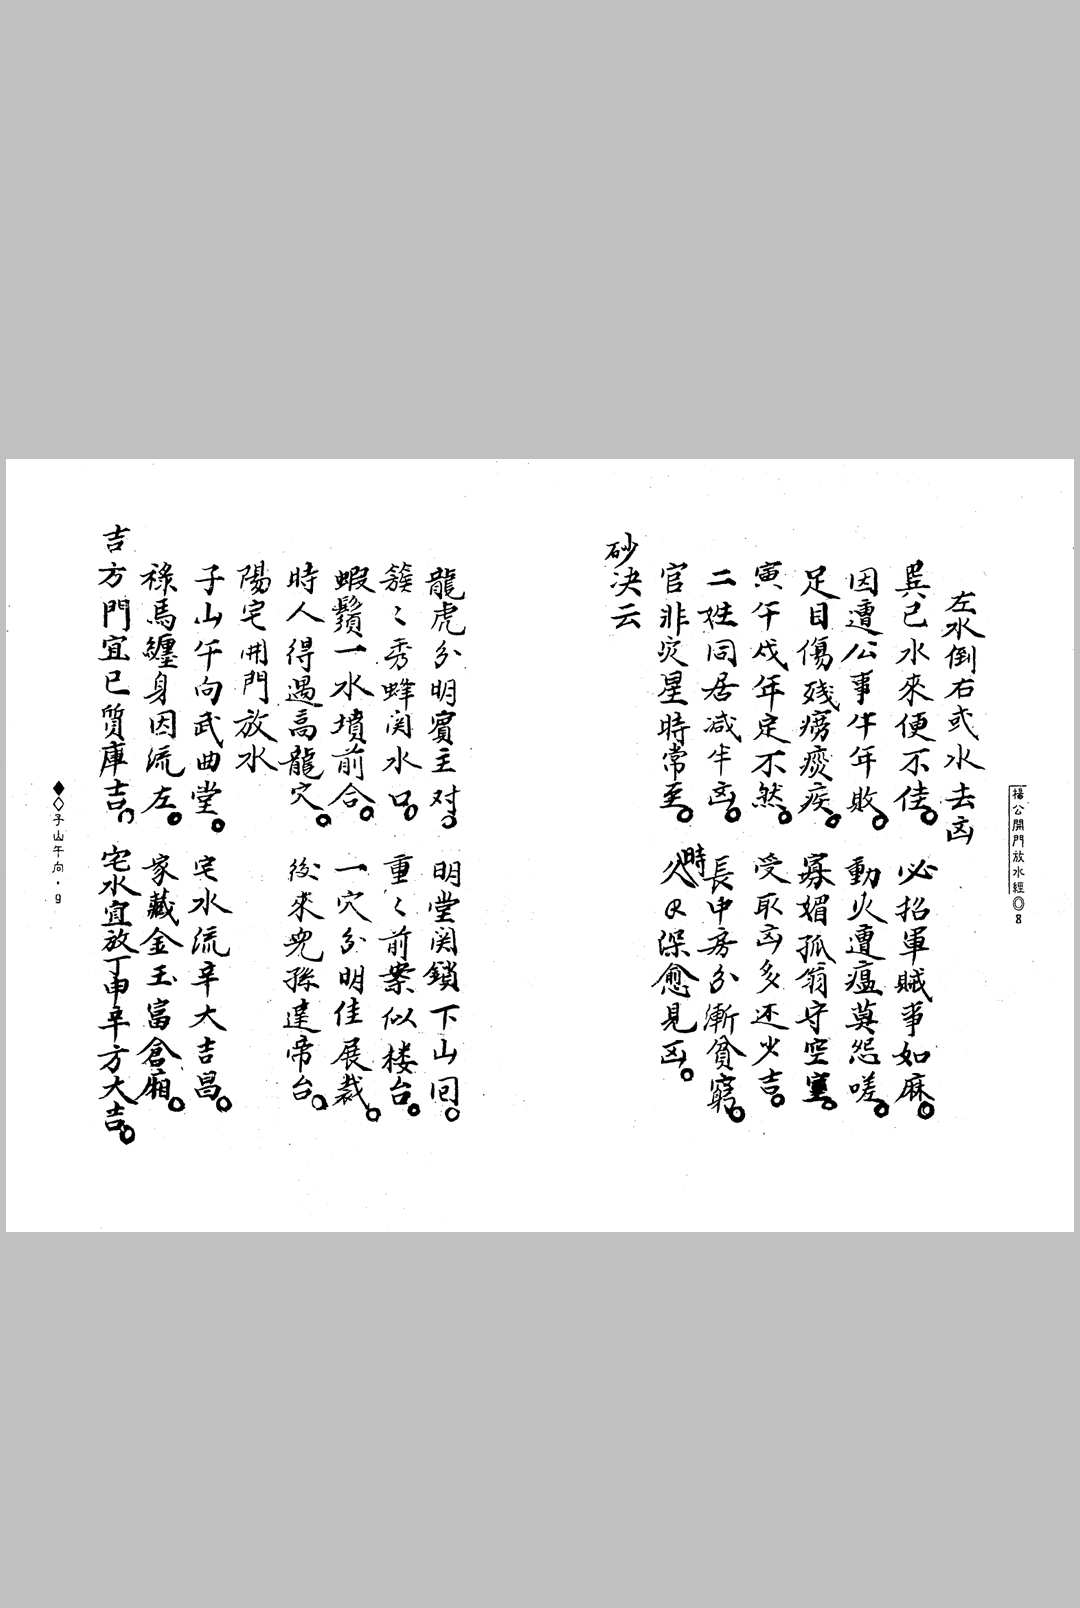 楊公開門放水經◎8
左水倒右或水去凶
巽巳水來便不佳。必招軍賊事如麻。
因遭公事牛年敗。動火遭瘟莫怨嗟。
足目傷殘癆痰疾。寡媚孤翁守空室。
寅午戌年定不然。受取凶多还少吉。
二姓同居减半凶。長中房分漸貧窮。
官非災星時常至。久時深愈見凶。
砂决云
龍虎分明賓主対。明堂関鎖下山囘。
簇〻秀蜂関水口。重〻前案似楼台。
蝦鬚一水墳前合。一穴分明佳展裁。
時人得遇高龍穴。後來兒孫達帝台。
陽宅開門放水
子山午向武曲堂。宅水流辛大吉昌。
祿馬纏身因流左。家藏金玉富倉廂。
吉方門宜巳質庫吉。宅水宜放丁申辛方大吉。
◆◇子山午向．9